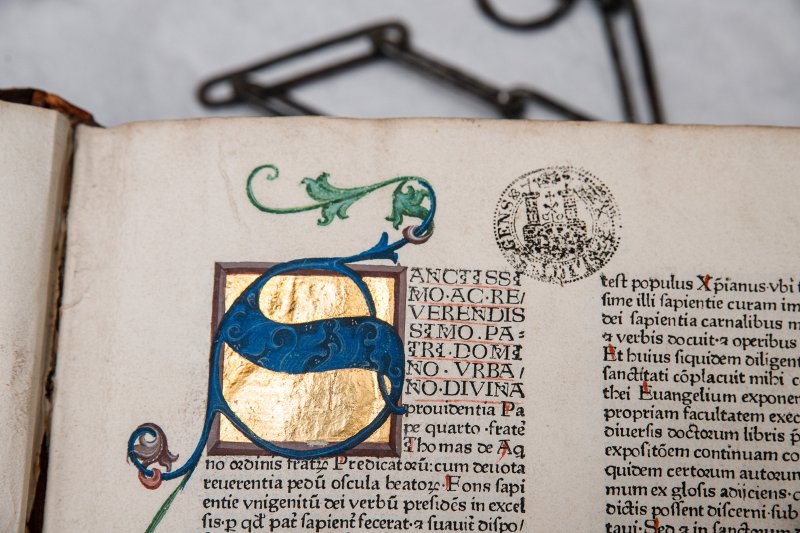 SANCTISSI
MO·AC·RE/
VERENDIS
SIMO·PA-
TRI·DOMI
NO·VRBA/
NO·DIVINA
prouidentia Pa
pe quarto·frater
Thomas de Aq
no ordinis fratrꝝ Predicatoꝝ:cum deuota
reuerentia pedū oscula beatorꝝ·Fons sapi
entie vnigenitū dei verbū presidēs in excel
sis·ꝑ qd̓ pat̓ sapient̓ fecerat·⁊ suauit̓ dispo/
test populus Xp̄ianus·vbi
sime illi sapientie curam im
dei sapientia carnalibus
⁊ verbis docuit·⁊ operibus
Et huius siquidem diligent
sanctitati cōplacuit mihi
thei Euangelium exponen
propriam facultatem exec
diuersis doctorum libris
expositōem continuam co
quidem certorum autorum
mum ex glosis adijciens·
dictis possent discerni·sub
taui·Sed ⁊ in sanctorum